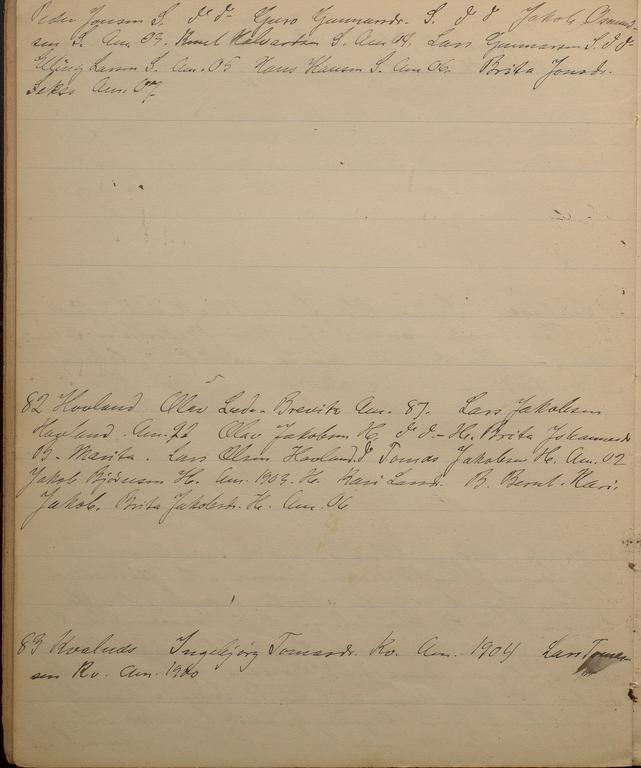 Peder Jonsen S. d° d° Guro Gunnarsdr. S. d° d° Jakob Osmund-
sen S. Am. 03. Knut Halvardsen S. Am. 04. Lars Gunnarsen S. d° d°
Elling Larsen S. Am. 05 Hans Hansen S. Am. 06. Brita Jonsdr.
Am. 07
82 Hovland Olav Brevik Am. 87. Lars Jakobsen
Hovland. Am. 92 Olav Jakobsen H. d° d° - H. Brita Johannesdr
B. Marita. Lars Olsen Hovland. d° Tomas Jakobsen H. Am. 02
Jakob Bjørnsen H. Am. 1903. H. Kari Larsdr. B. Bernt. Kari.
Jakob. Brita Jakobsdr. H. Am. 06
83 Kvalnes Ingebjørg Tomasdr. Kv. Am. 1904 Lars Tomas-
sen Kv. Am. 1900